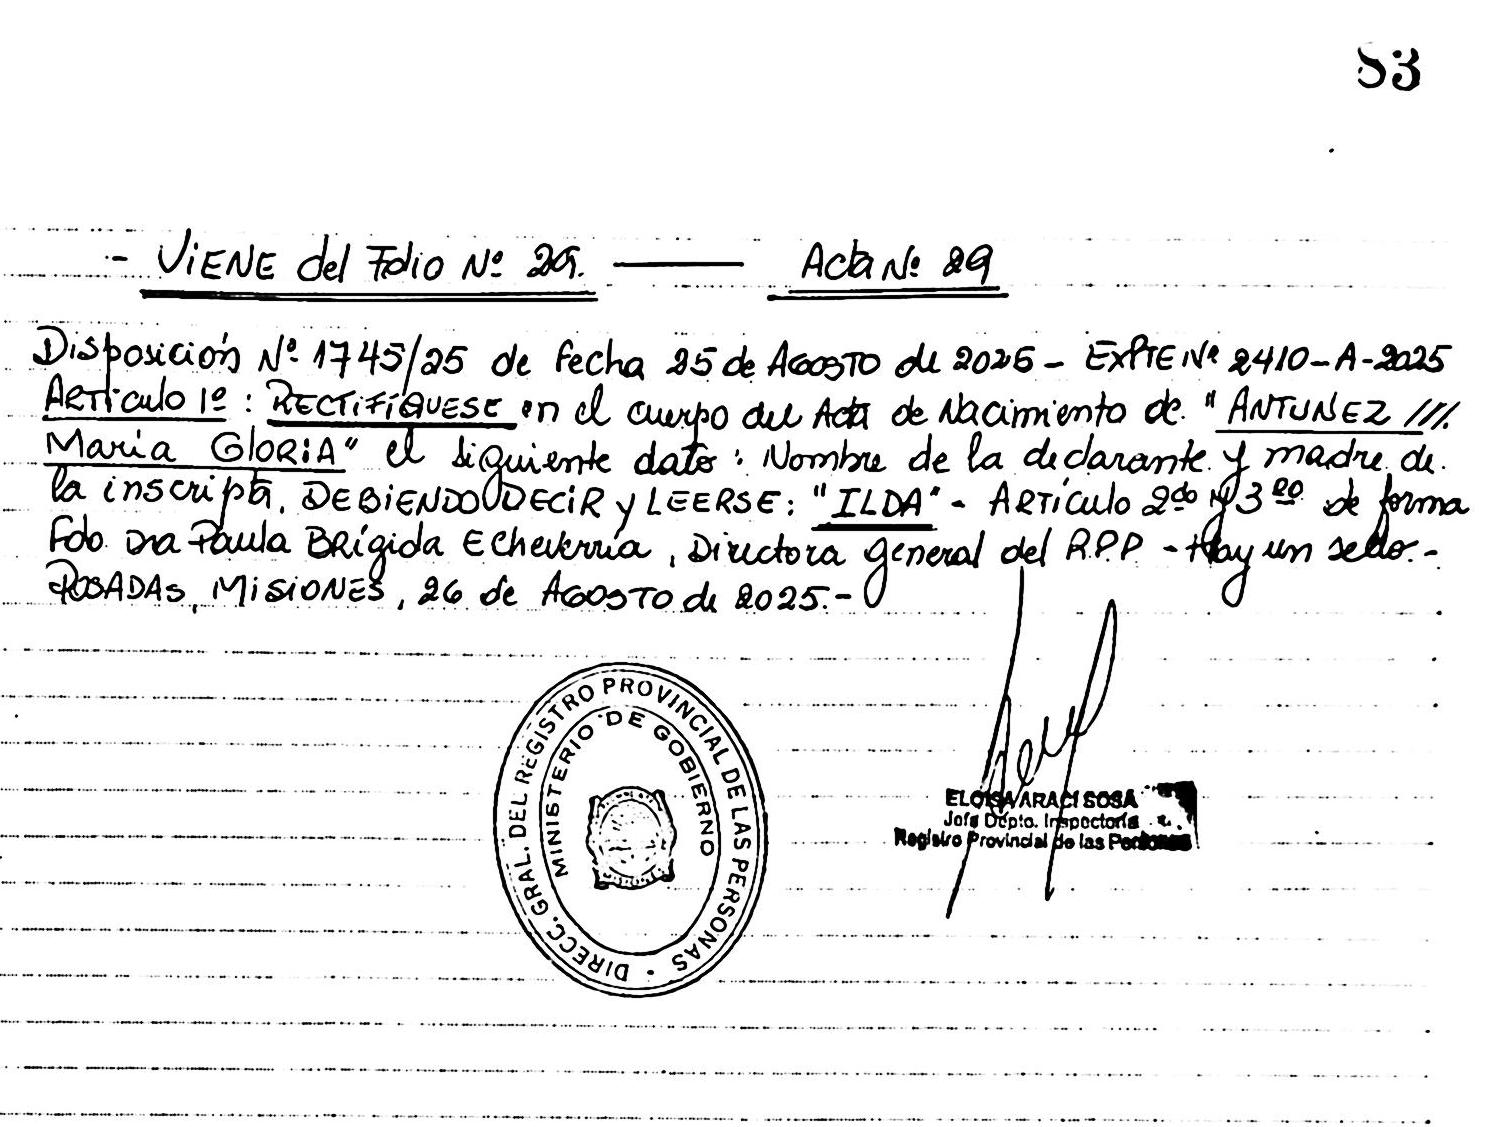 83
- ViENE del Folio Nº 29. ——— Acta Nº 29
Disposición Nº 1745/25 de fecha 25 de AGOSTO de 2025 - EXPTE Nº 2410-A-2025
Artículo 1º : RECTIFÍQUESE en el cuerpo del Acta de Nacimiento de "ANTUNEZ ///.
María GLORIA" el siguiente dato : Nombre de la declarante y madre de
la inscripta, DEBIENDO DECIR y LEERSE : "ILDA" - Artículo 2do y 3ro de forma
Fdo Dra Paula BRígida Echeverria, Directora general del R.P.P - Hay un sello.-
POSADAS, MISIONES, 26 de AGOSTO de 2025.-
DIRECC. GRAL. DEL REGISTRO PROVINCIAL DE LAS PERSONAS •
MINISTERIO DE GOBIERNO
ELOISA ARACI SOSA
Jefa Dpto. Inspectoría
Registro Provincial de las Personas